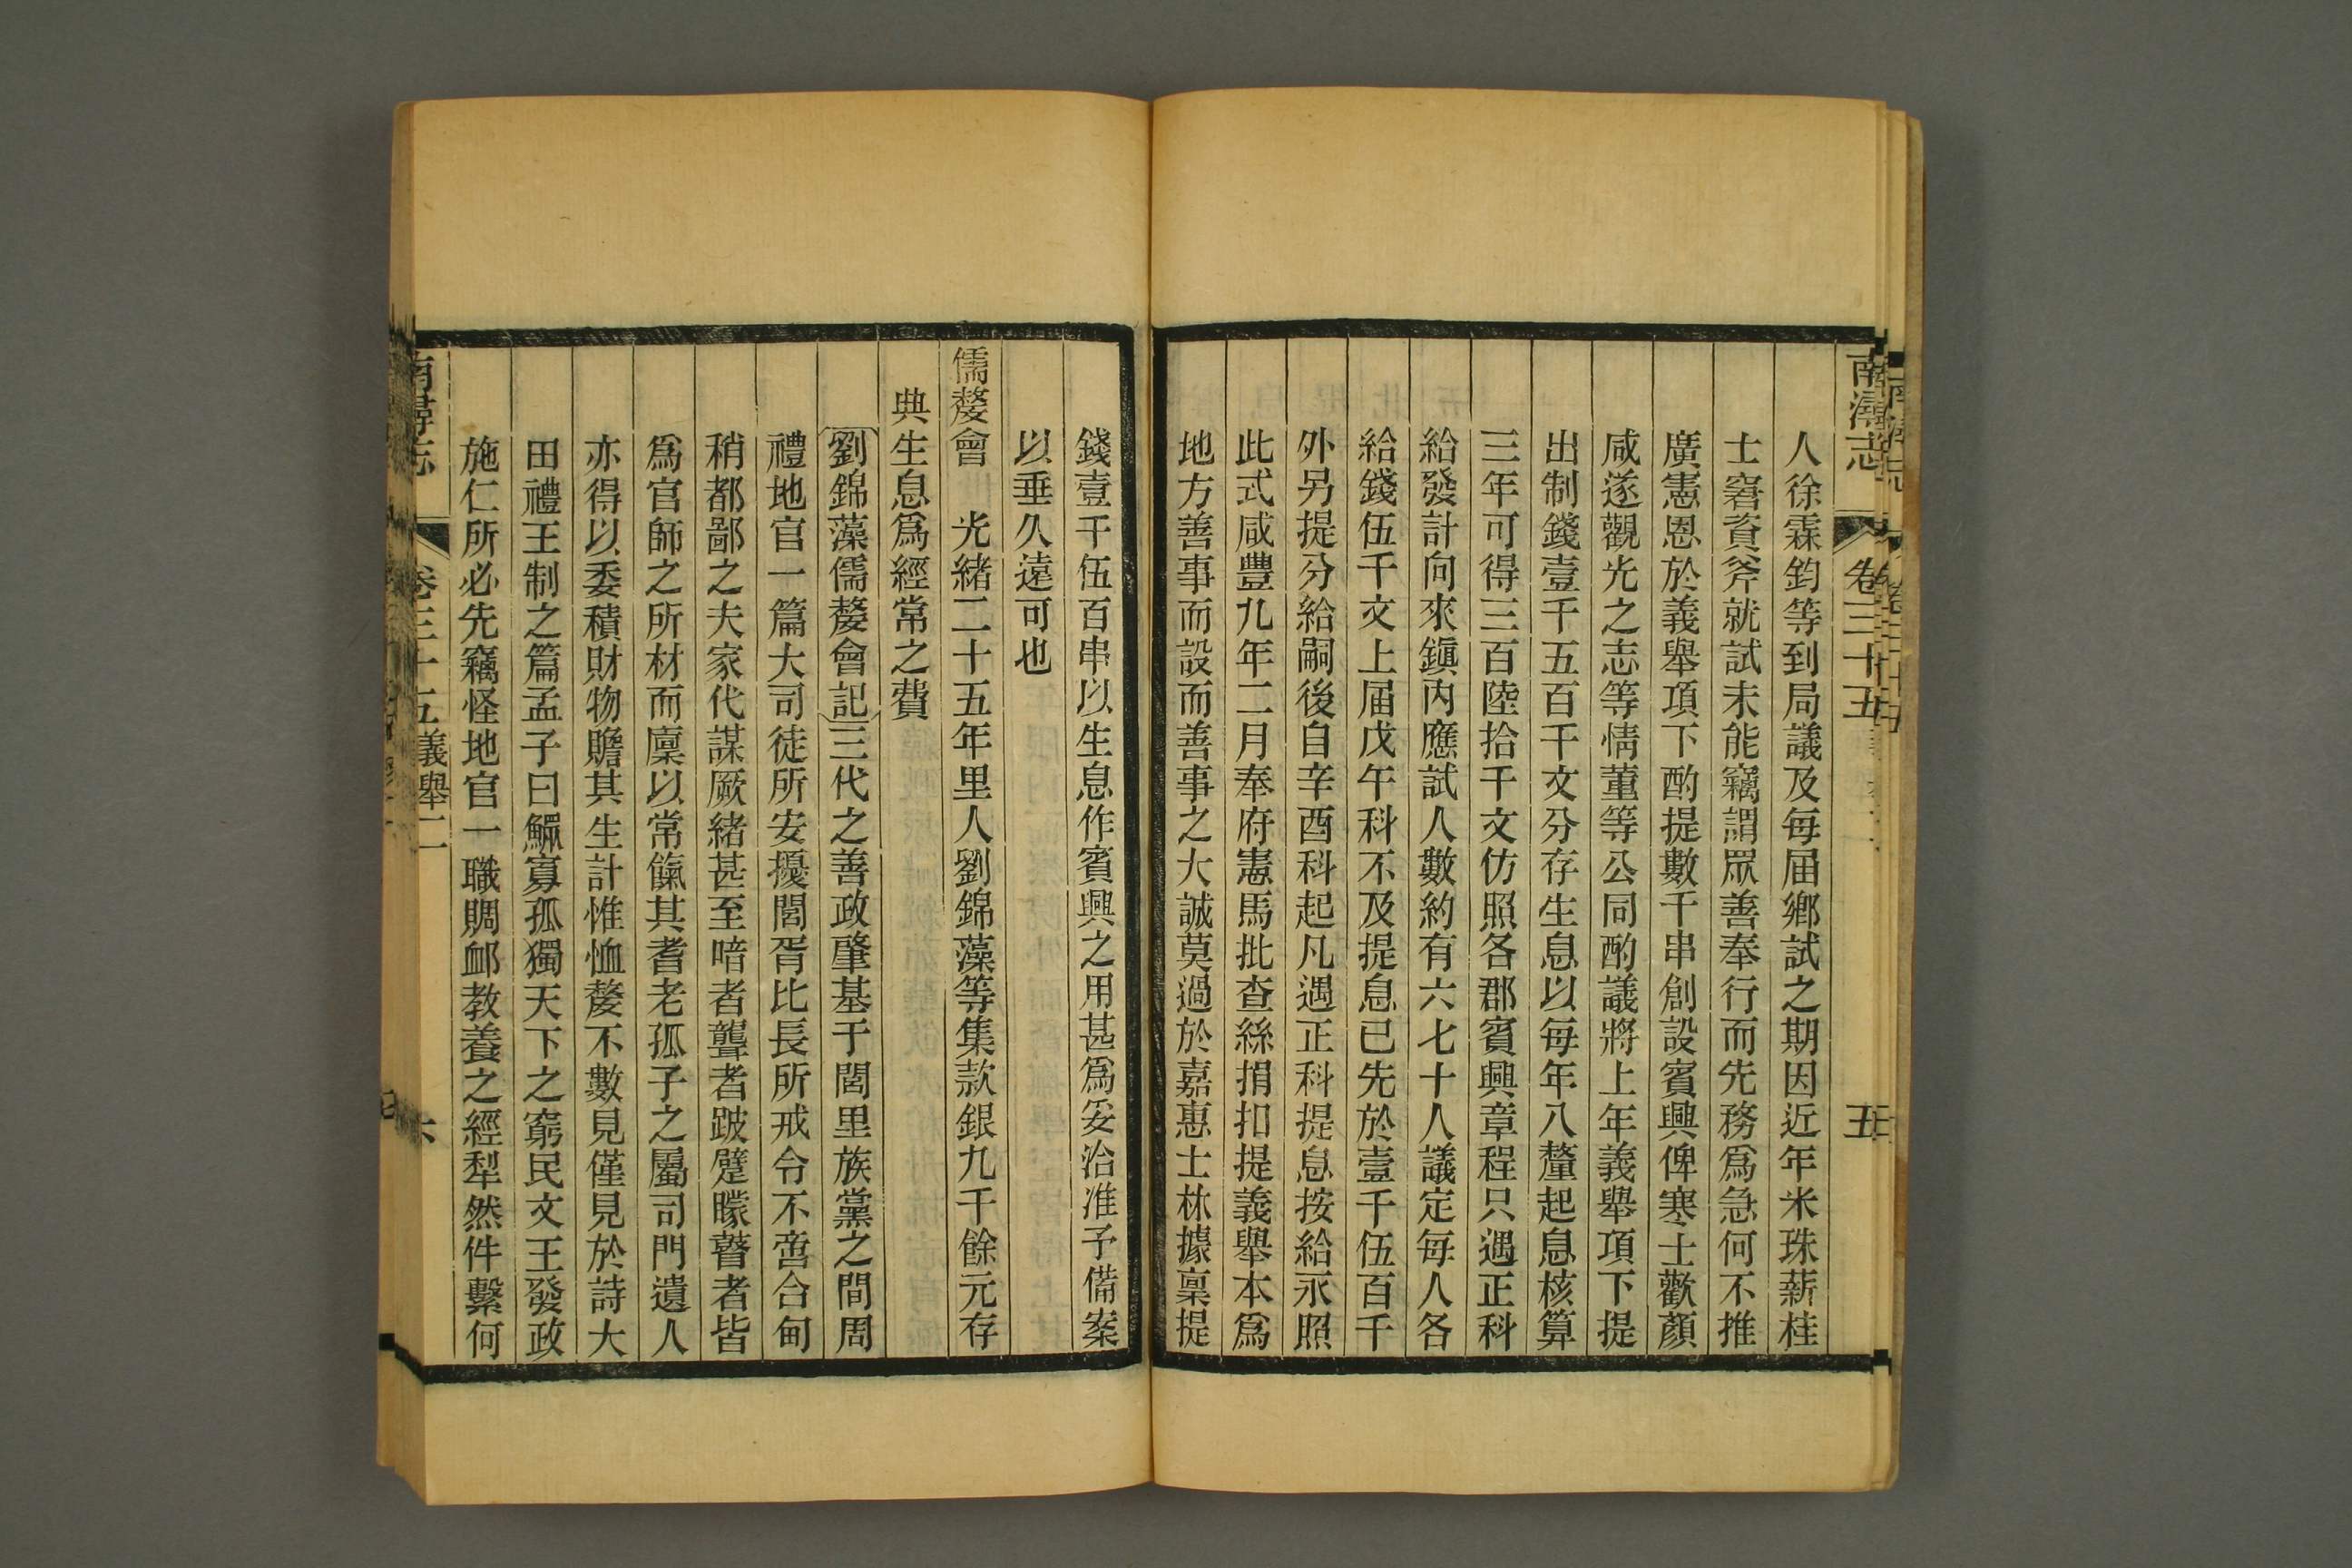 南潯志 卷三十五 五
人徐霖鈞等到局議及每届鄉試之期因近年米珠薪桂
士窘資斧就試未能竊謂眾善奉行而先務爲急何不推
廣憲恩於義舉項下酌提數千串創設賓興俾寒士歡顏
咸遂觀光之志等情董等公同酌議將上年義舉項下提
出制錢壹千五百千文分存生息以每年八釐起息核算
三年可得三百陸拾千文仿照各郡賓興章程只遇正科
給發計向來鎮內應試人數約有六七十人議定每人各
給錢伍千文上届戊午科不及提息已先於壹千伍百千
外另提分給嗣後自辛酉科起凡遇正科提息按給永照
此式咸豐九年二月奉府憲馬批查絲捐扣提義舉本爲
地方善事而設而善事之大誠莫過於嘉惠士林據稟提
錢壹千伍百串以生息作賓興之用甚爲妥洽准予備案
以垂久遠可也
儒嫠會 光緒二十五年里人劉錦藻等集款銀九千餘元存
典生息爲經常之費
劉錦藻儒嫠會記三代之善政肇基于閭里族黨之間周
禮地官一篇大司徒所安擾閭胥比長所戒令不啻合甸
稍都鄙之夫家代謀厥緒甚至喑者聾者跛躄矇瞽者皆
爲官師之所材而廩以常餼其耆老孤子之屬司門遺人
亦得以委積財物贍其生計惟恤嫠不數見僅見於詩大
田禮王制之篇孟子曰鰥寡孤獨天下之窮民文王發政
施仁所必先竊怪地官一職賙卹教養之經犁然件繫何
南潯志 卷三十五 義舉二 六